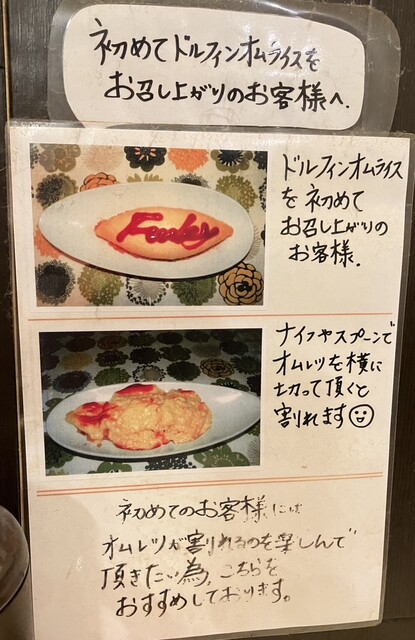 初めてドルフィンオムライスを
お召し上がりのお客様へ.
Funky
ドルフィンオムライス
を初めて
お召し上がりの
お客様.
ナイフやスプーンで
オムレツを横に
切って頂くと
割れます
初めてのお客様には
オムレツが割れるのを楽しんで
頂きたい為、こちらを
おすすめしております。